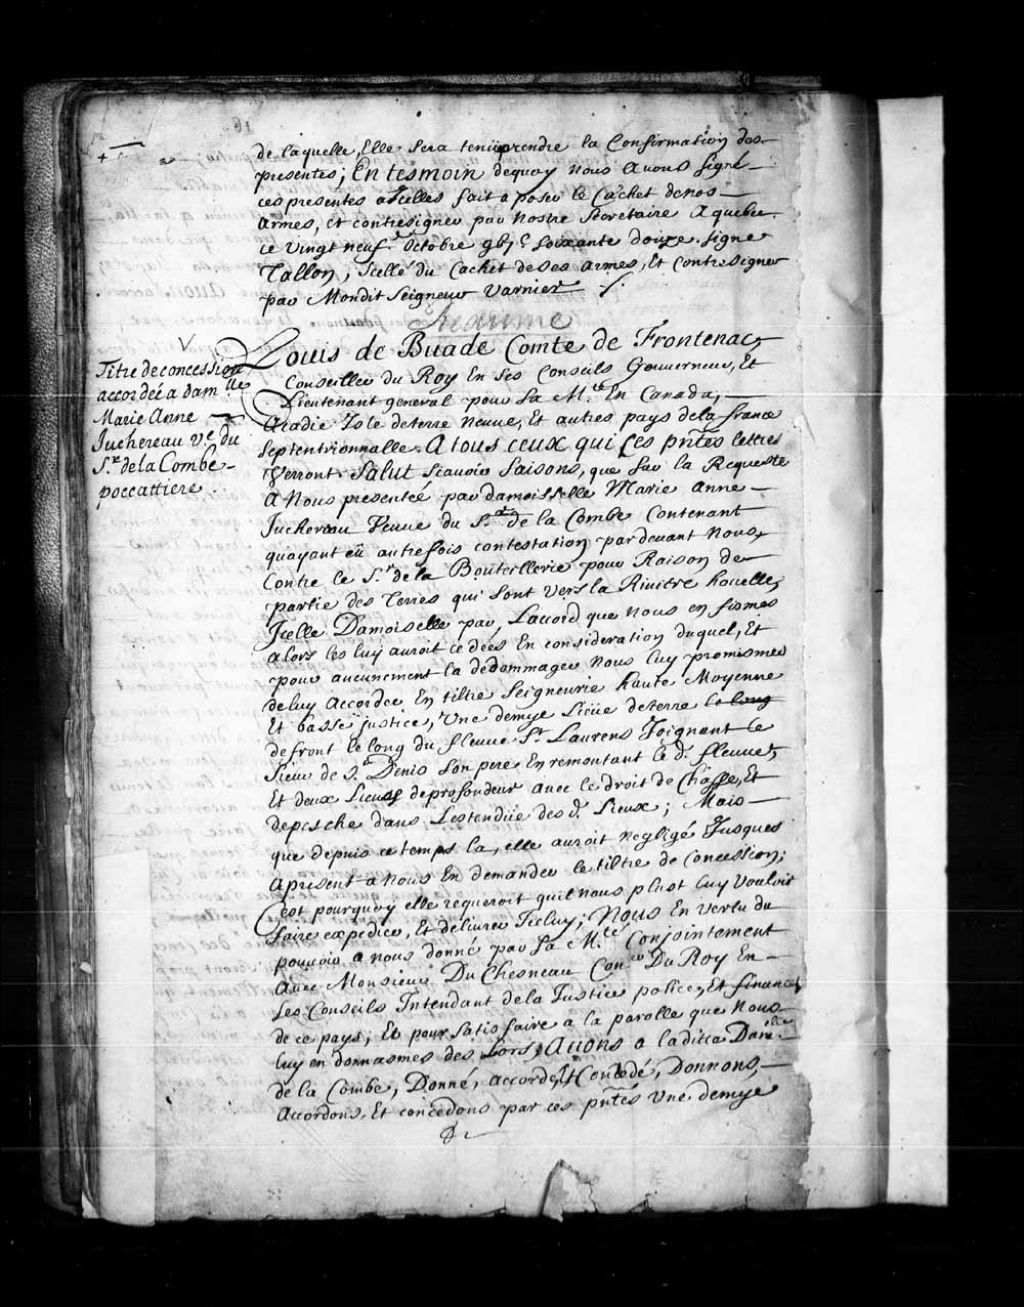 de laquelle, Elle sera tenüe prendre la Confirmation des
presentes; En tesmoin dequoy nous avons signé
ces presentes a Icelles fait aposer le Cachet denos
armes, et contresigner par nostre Secretaire A quebec
ce vingt neufe octobre gbi c soixante douze. signé
Tallon, scellé du Cachet de ses armes, Et Contresigner
par Mondit seigneur varnier ./.
V
Titre de concession
accordée a dam.lle
Marie Anne
Juchereau ve. du
Sr. de la Combe
poccattiere
Louis de Buade Comte de Frontenac,
Conseiller du Roy En ses Conseils Gouverneur, Et
Lieutenant general pour sa M.té En Canada,
Acadie Isle deterre Neuve, Et autres pays dela france
septentrionnalle. A tous ceux qui ces pntes lettres
verront salut scavoir faisons, que sur la Requeste
a Nous presenteé par damoisselle Marie anne
Juchereau Veuve du Sr. de la Combe Contenant
quayant eü autrefois contestation pardevant nous,
Contre le Sr. de la Bouteillerie pour Raison de
partie des terres qui sont vers la Riviere houelle,
Icelle Damoiselle par Laccord que nous en fismes
alors les luy auroit cedées En consideration duquel, Et
pour aucunement la dedommager nous luy promismes
deluy accorder En tiltre seigneurie haute Moyenne
Et basse justice, Une demye Lieüe deterre le long
defront le long du fleuve St. Laurens Joignant le
sieur de St. Denis son pere En remontant le d. fleuve,
Et deux Lieues deprofondeur avec le droit de Chasse, Et
depesche dans Lestendüe des d. Lieux; Mais
que depuis ce temps la, elle auroit negligé Jusques
apresent a nous En demander le tiltre de Concession;
Cest pourquoy elle requeroit quil nous plust luy vouloir
faire expedier, Et delivrer Icluy; Nous En vertu du
pouvoir a nous donné par sa M.té Conjointement
avec Monsieur Du Chesneau Con.er Du Roy En
ses Conseils Intendant dela Justice police, Et finances
de ce pays; Et pour satisfaire a la parolle que nous
luy en donnasmes des Lors, Avons a laditte Dam.lle
de la Combe, Donné, accordé, Et Concedé, Donnons,
accordons, Et concedons par ces pntes Une demye